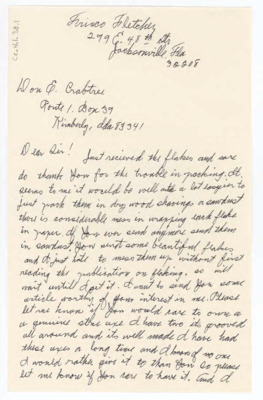 Frisco Fletcher
279 E. 48th St
Jacksonville, Fla
32208
Don E. Crabtree
Route 1. Box 39
Kimberly, Ida 83341
Dear Sir! Just recieved the flakes and sure
do thank you for the trouble in packing. It
seems to me it would be well and a lot easier to
just pack them in dry wood shavings or sawdust
there is considerable mess in wrapping each flake
in paper. If you ever send anymore send them
in sawdust. You sent some beautiful flakes
and I just hate to mess them up without first
reading the publication on flaking, so will
wait untill I get it. I want to send you some
article worthy of your interest in me. Please
let me know if you would care to own a
a genuine stone axe I have two its grooved
all around and its well made I have had
these axes a long time and I know of no one
I would rather give it to than you so please
let me know if you care to have it. And I